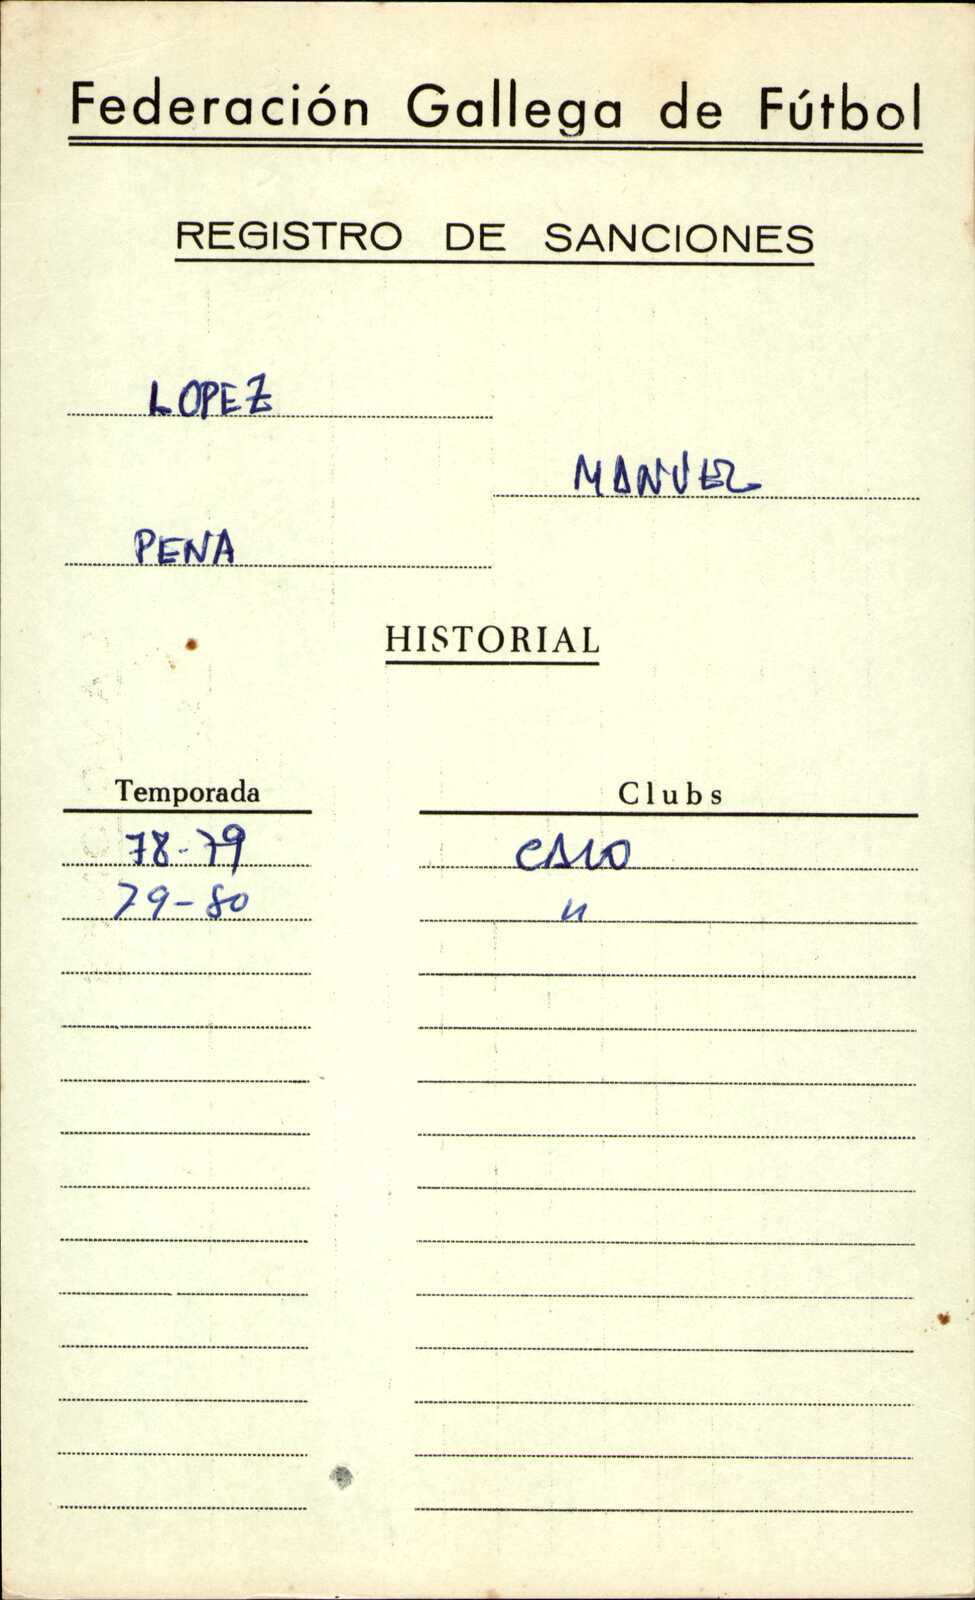 Federación Gallega de Fútbol
REGISTRO DE SANCIONES
LOPEZ
MANUEL
PENA
HISTORIAL
Temporada Clubs
78-79 CALO
79-80 "